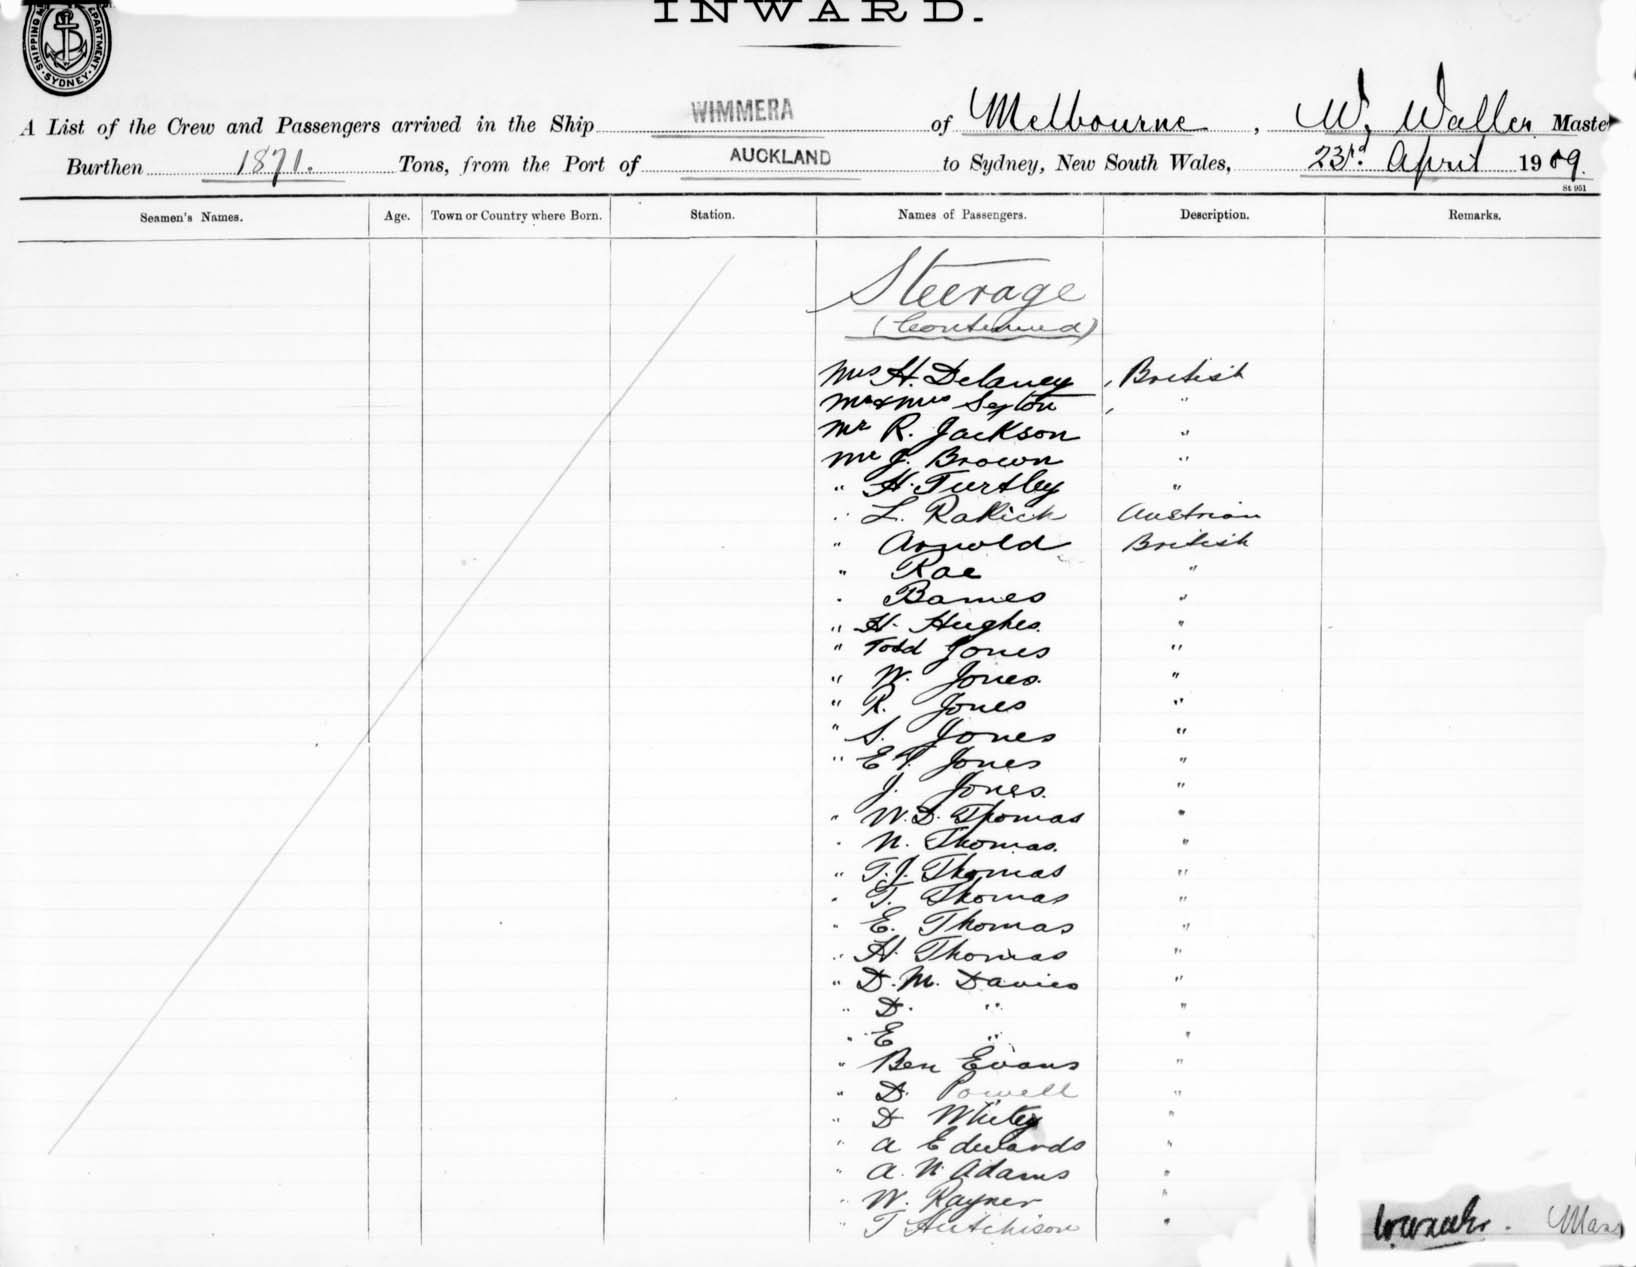 INWARD.
SHIPPING DEPARTMENT SYDNEY
A List of the Crew and Passengers arrived in the Ship WIMMERA of Melbourne, W, Waller Master
Burthen 1871. Tons, from the Port of AUCKLAND to Sydney, New South Wales, 23rd April 1909.
St 951
Seamen's Names. Age. Town or Country where Born. Station. Names of Passengers. Description. Remarks.
Steerage
(Continued)
Mrs H. Delaney British
Mr & Mrs Sexton "
Mr R. Jackson "
Mr J. Brown "
" H. Turtley "
" L. Rakich Austrian
" Arnold British
" Rae "
" Barnes "
" H. Hughes "
" Todd Jones "
" W. Jones "
" R. Jones "
" S. Jones "
" E T. Jones "
J. Jones "
" W. D. Thomas "
" N. Thomas "
" T. J. Thomas "
" T. Thomas "
" E. Thomas "
" H Thomas "
" D. M. Davies "
" D. " "
" E " "
" Ben Evans "
" D. Powell "
" D Whitey "
" A Edwards "
" A. N. Adams "
" W. Rayner "
" T Hutchison "